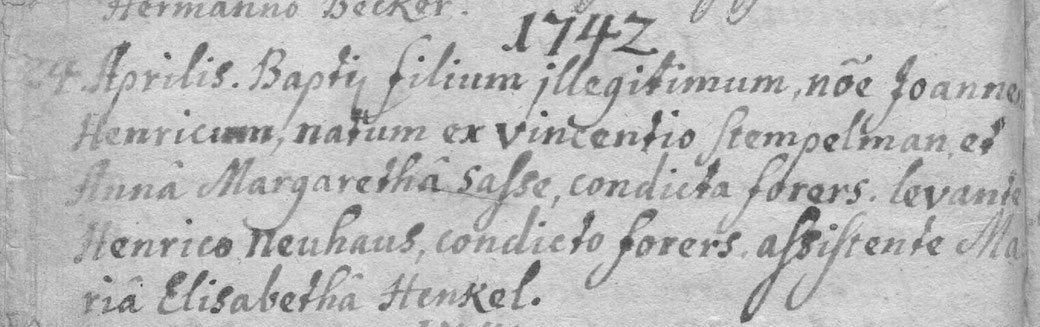 Hermanno Becker.
1742
24 Aprilis. Baptij filium illegitimum, nõe Joannem
Henricum, natum ex Vincentio Stempelman et
Annâ Margarethâ Sasse, condicta forers. levante
Henrico Neuhaus, condicto forers. assistente Ma
riâ Elisabethâ Henkel.